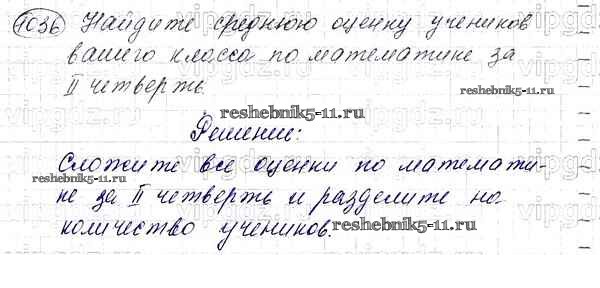 1036 Найдите среднюю оценку учеников
вашего класса по математике за
II четверть.
reshebnik5-11.ru
Решение:
Сложите все оценки по математи-
reshebnik5-11.ru
ке за II четверть и разделите на
количество учеников.
reshebnik5-11.ru
vipgdz.ru